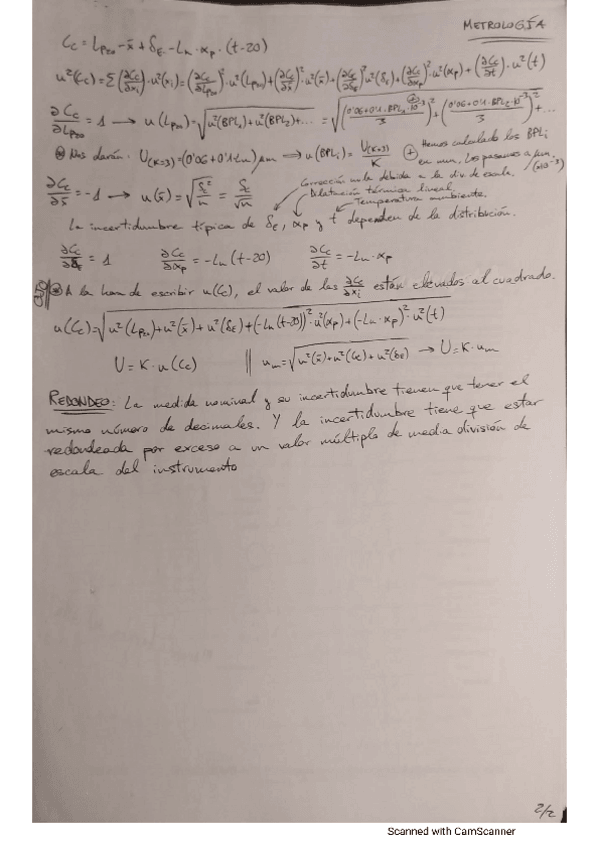 METROLOGÍA
Cc = Lp20 - x̄ + δE - Ln · αp · (t-20)
u²(Cc) = Σ(∂Cc/∂xi)² · u²(xi) = (∂Cc/∂Lp20)² · u²(Lp20) + (∂Cc/∂x̄)² · u²(x̄) + (∂Cc/∂δE)² u²(δE) + (∂Cc/∂αp)² · u²(αp) + (∂Cc/∂t)² · u²(t)
∂Cc/∂Lp20 = 1 → u(Lp20) = √(u²(BPL1) + u²(BPL2) + ...) = √(((0'06+0'1·BPL1·10⁻³)/3)² + ((0'06+0'1·BPL2·10⁻³)/3)² + ...)
⊛ Nos darán: U(K=3) = (0'06+0'1Ln) μm ⟹ u(BPLi) = U(K=3)/K
⊕ Hemos calculado los BPLi
en mm, los pasamos a μm. (·10⁻³)
∂Cc/∂x̄ = -1 → u(x̄) = √(Sc²/n) = Sc/√n
Corrección nula debida a la div. de escala.
Dilatación térmica lineal.
Temperatura ambiente.
La incertidumbre típica de δE, αp y t dependen de la distribución.
∂Cc/∂δE = 1 ∂Cc/∂αp = -Ln(t-20) ∂Cc/∂t = -Ln·αp
⊛ A la hora de escribir u(Cc), el valor de las ∂Cc/∂xi están elevados al cuadrado.
u(Cc) = √(u²(Lp20) + u²(x̄) + u²(δE) + (-Ln(t-20))² · u²(αp) + (-Ln·αp)² · u²(t))
U = K · u(Cc) || um = √(u²(x̄) + u²(Cc) + u²(δE)) → U = K · um
REDONDEO: La medida nominal y su incertidumbre tienen que tener el
mismo número de decimales. Y la incertidumbre tiene que estar
redondeada por exceso a un valor múltiplo de media división de
escala del instrumento
2/2
Scanned with CamScanner